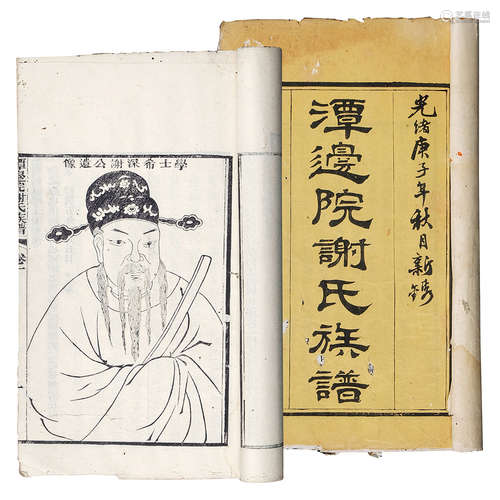 光緒庚子年秋月新鐫
潭邊院謝氏族譜
學士希深謝公遺像
潭邊院謝氏族譜 卷一